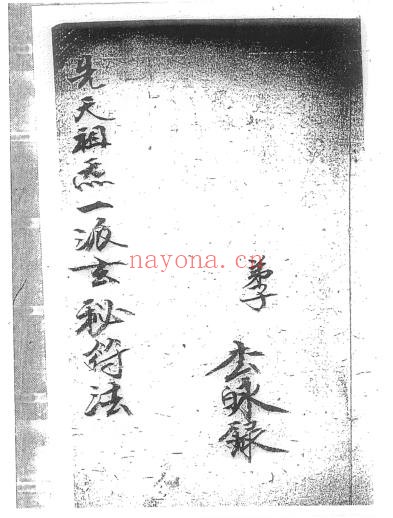 先天祖炁一派玄秘符法
弟子 李眿錄
nayona.cn